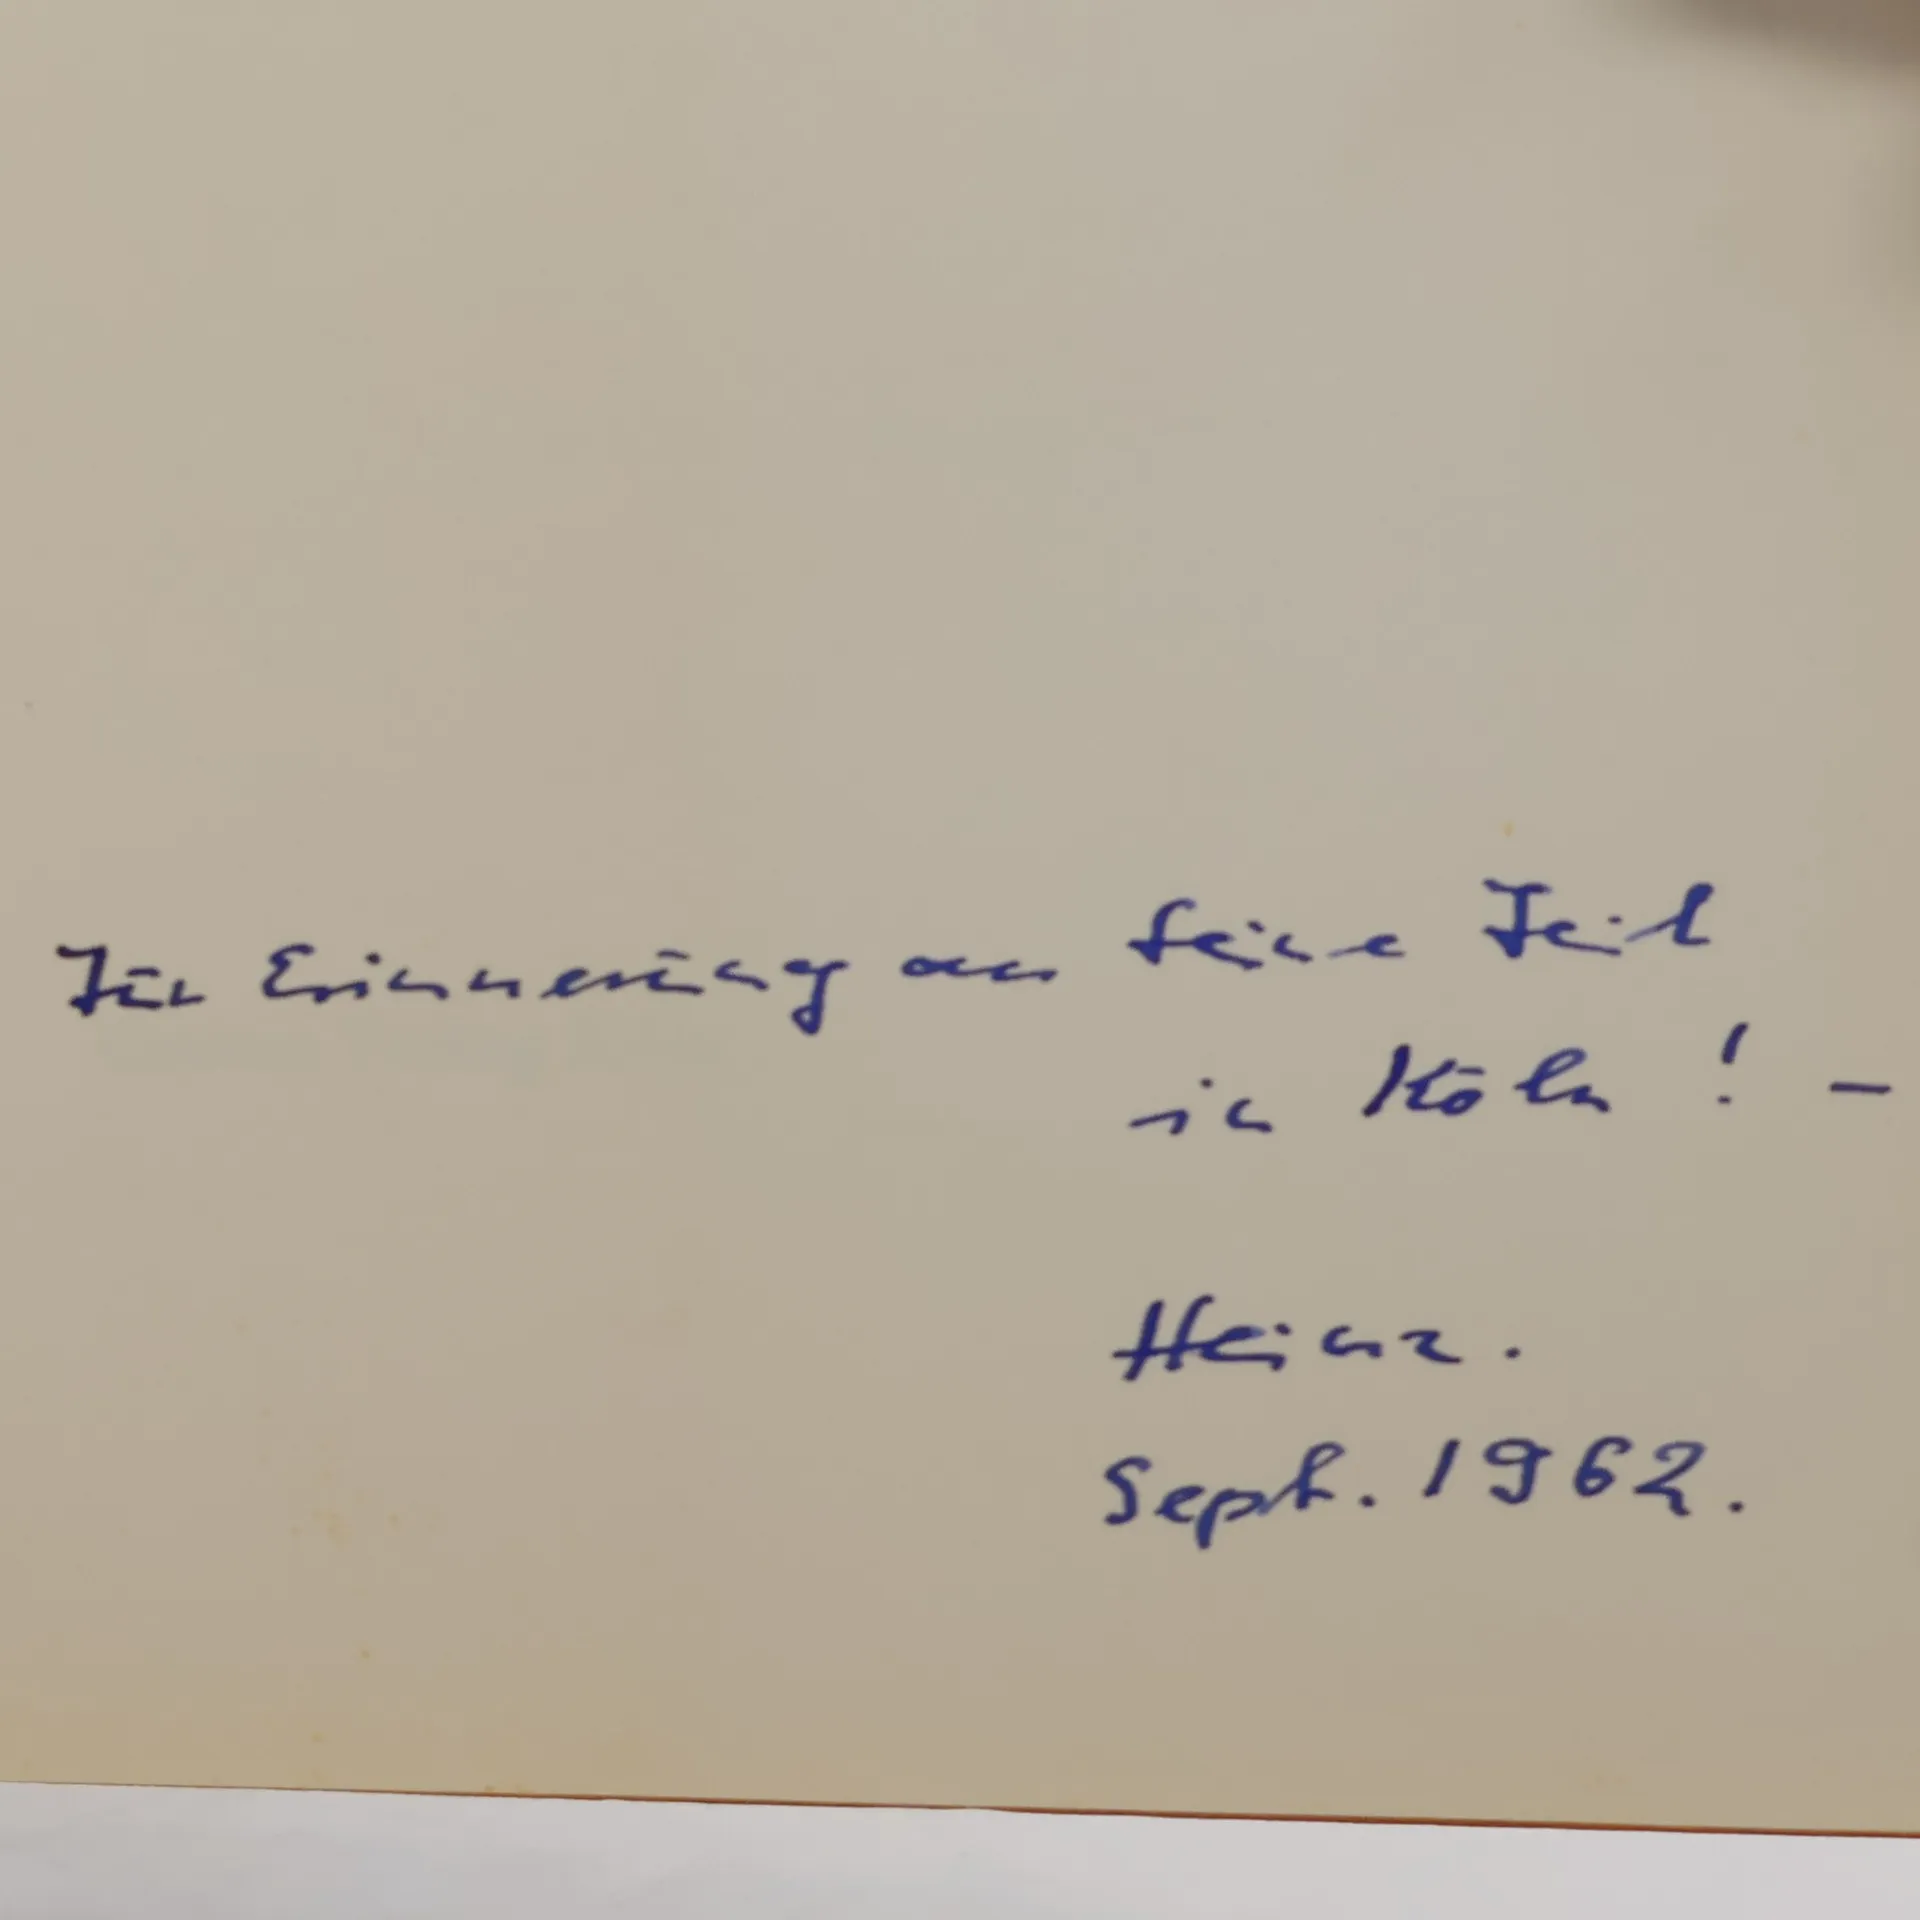 Zur Erinnerung an Deine Zeit
in Köln ! –
Heinz.
Sept. 1962.